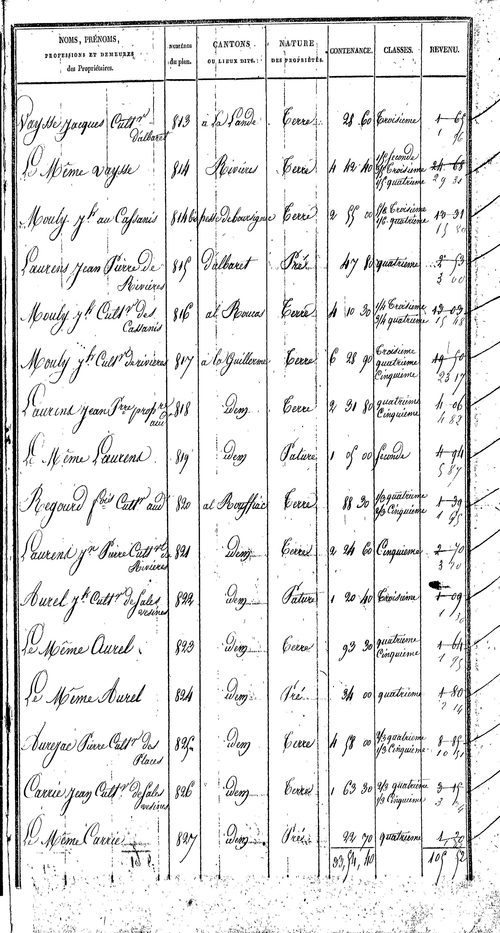 NOMS, PRÉNOMS, PROFESSIONS ET DEMEURES des Propriétaires. NUMÉROS du plan. CANTONS OU LIEUX DITS. NATURE DES PROPRIÉTÉS. CONTENANCE. CLASSES. REVENU.
Vaysse Jacques Cult.r d'albaret 813 à la Lande Terre 28 60 Troisieme 1 65
Le Même Vaysse 814 Rivières Terre 4 42 40 seconde Troisieme quatrième 24 68
29 31
Mouly j.h au Cassanis 814 Terre 2 55 00 Troisieme quatrième 13 31
Laurens Jean Pierre de Rivières 815 D'albaret Pré 47 80 quatrieme 2 53
3 00
Mouly j.h Cult.r des Cassanis 816 al Roucas Terre 4 10 30 1/4 Troisieme 3/4 quatrième 13 03
15 48
Mouly j.h Cult.r de rivières 817 à la Guillerme Terre 6 28 90 Troisieme quatrieme Cinquieme 19 50
23 17
Laurens Jean P.rre prop.re aud. 818 idem Terre 2 31 80 quatrieme Cinquieme 4 06
4 82
Le Même Laurens 819 idem Pature 1 05 00 seconde 4 94
5 87
Regourd f.ois Cult.r aud. 820 al Rouffiac Terre 88 30 1/3 quatrieme 2/3 Cinquieme 1 39
Laurens J.n Pierre Cult.r de Rivières 821 idem Terre 2 24 60 Cinquieme 2 70
Aurel j.h Cult.r de Sales 822 idem Pature 1 20 40 Troisieme 1 09
Le Même Aurel 823 idem Terre 93 30 quatrieme Cinquieme 1 64
1 95
Le Même Aurel 824 idem Pré 34 00 quatrième 1 80
2 14
Aurejac Pierre Cult.r des Places 825 idem Terre 4 58 00 2/3 quatrieme 1/3 Cinquieme 8 85
10 51
Carrie Jean Cult.r de Sales 826 idem Terre 1 63 30 2/3 quatrième 1/3 Cinquieme 3 15
Le Même Carrie 827 idem Pré 22 70 quatrième 1 20
33, 54, 40 105 52